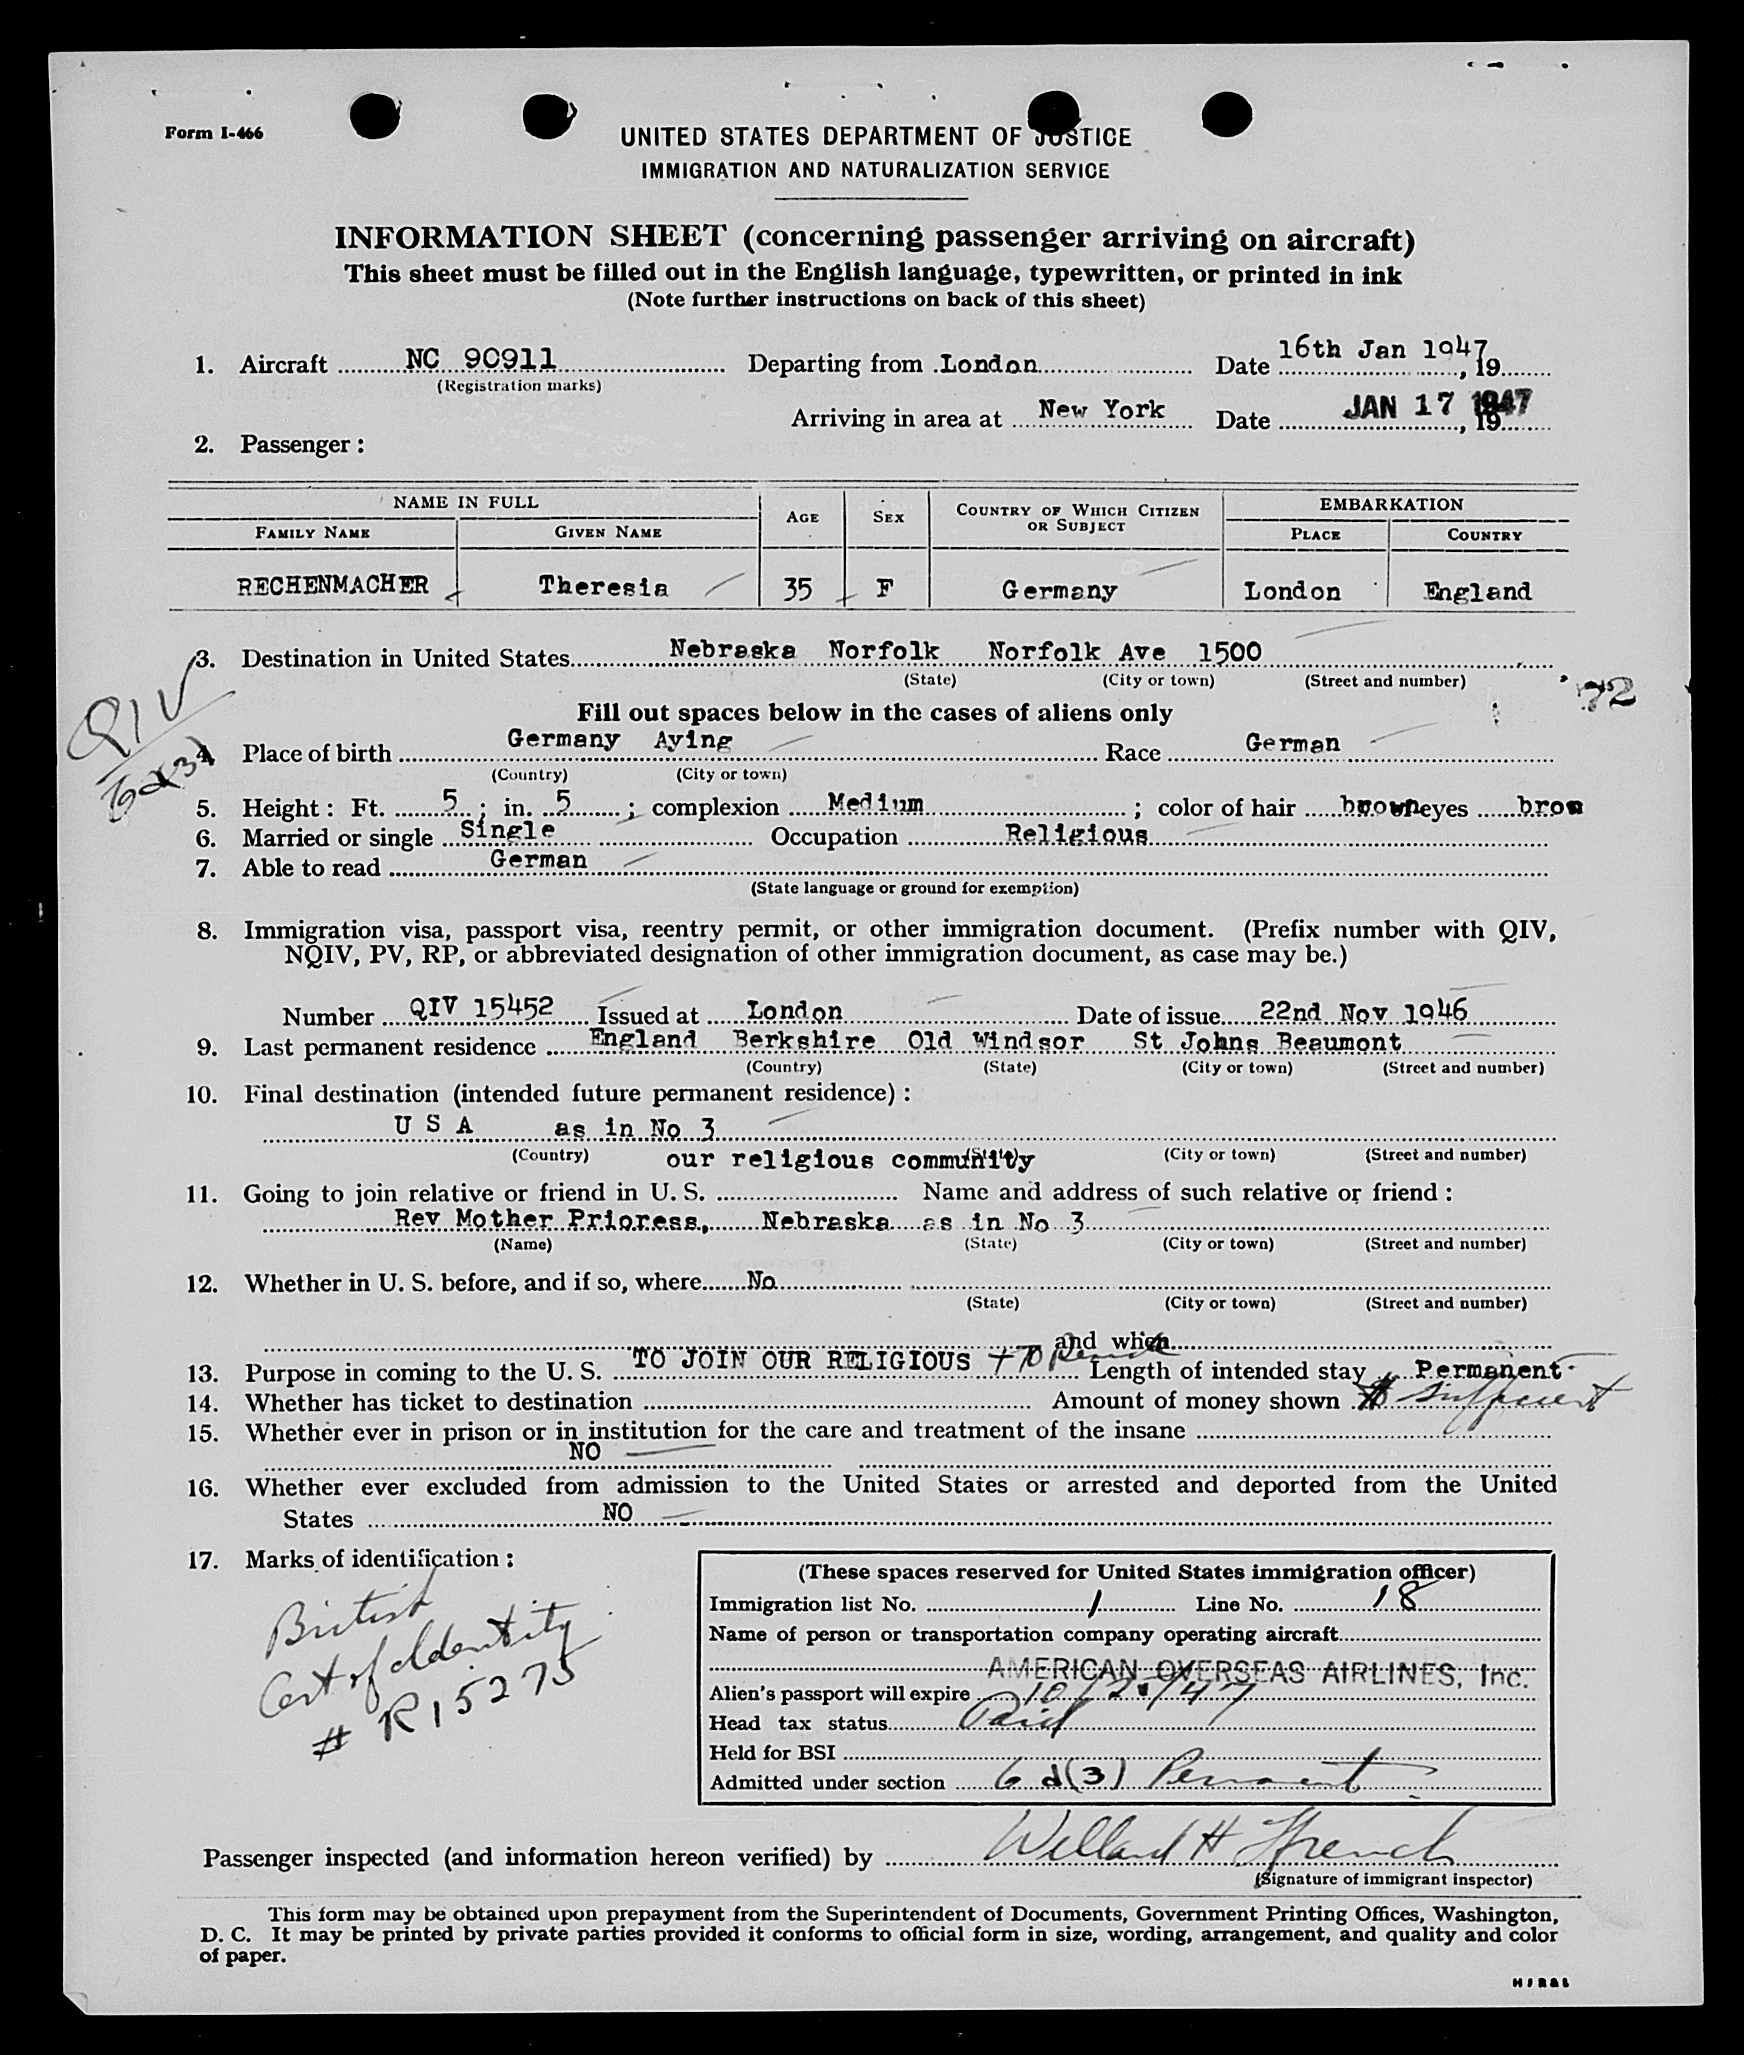 Form I-466
UNITED STATES DEPARTMENT OF JUSTICE
IMMIGRATION AND NATURALIZATION SERVICE
INFORMATION SHEET (concerning passenger arriving on aircraft)
This sheet must be filled out in the English language, typewritten, or printed in ink
(Note further instructions on back of this sheet)
1. Aircraft NC 90911 Departing from London Date 16th Jan 1947, 19
(Registration marks)
Arriving in area at New York Date JAN 17 1947, 19
2. Passenger :
NAME IN FULL AGE SEX COUNTRY OF WHICH CITIZEN OR SUBJECT EMBARKATION
FAMILY NAME GIVEN NAME PLACE COUNTRY
RECHENMACHER Theresia 35 F Germany London England
3. Destination in United States Nebraska Norfolk Norfolk Ave 1500
(State) (City or town) (Street and number)
QIV
6d3)
72
Fill out spaces below in the cases of aliens only
4. Place of birth Germany Aying Race German
(Country) (City or town)
5. Height : Ft. 5 ; in. 5 ; complexion Medium ; color of hair brown eyes brow
6. Married or single Single Occupation Religious
7. Able to read German
(State language or ground for exemption)
8. Immigration visa, passport visa, reentry permit, or other immigration document. (Prefix number with QIV,
NQIV, PV, RP, or abbreviated designation of other immigration document, as case may be.)
Number QIV 15452 Issued at London Date of issue 22nd Nov 1946
9. Last permanent residence England Berkshire Old Windsor St Johns Beaumont
(Country) (State) (City or town) (Street and number)
10. Final destination (intended future permanent residence) :
U S A as in No 3
(Country) (State) (City or town) (Street and number)
our religious community
11. Going to join relative or friend in U. S. Name and address of such relative or friend :
Rev Mother Prioress, Nebraska as in No 3
(Name) (State) (City or town) (Street and number)
12. Whether in U. S. before, and if so, where No
(State) (City or town) (Street and number)
and when
13. Purpose in coming to the U. S. TO JOIN OUR RELIGIOUS + TO Length of intended stay Permanent
14. Whether has ticket to destination Amount of money shown $ sufficient
15. Whether ever in prison or in institution for the care and treatment of the insane
NO
16. Whether ever excluded from admission to the United States or arrested and deported from the United
States NO
17. Marks of identification :
British
Cert of Identity
# R15275
(These spaces reserved for United States immigration officer)
Immigration list No. 1 Line No. 18
Name of person or transportation company operating aircraft
AMERICAN OVERSEAS AIRLINES, Inc.
Alien's passport will expire 10/2/47
Head tax status Paid
Held for BSI
Admitted under section 6 d(3) Permanent
Passenger inspected (and information hereon verified) by Willard H French
(Signature of immigrant inspector)
This form may be obtained upon prepayment from the Superintendent of Documents, Government Printing Offices, Washington,
D. C. It may be printed by private parties provided it conforms to official form in size, wording, arrangement, and quality and color
of paper.